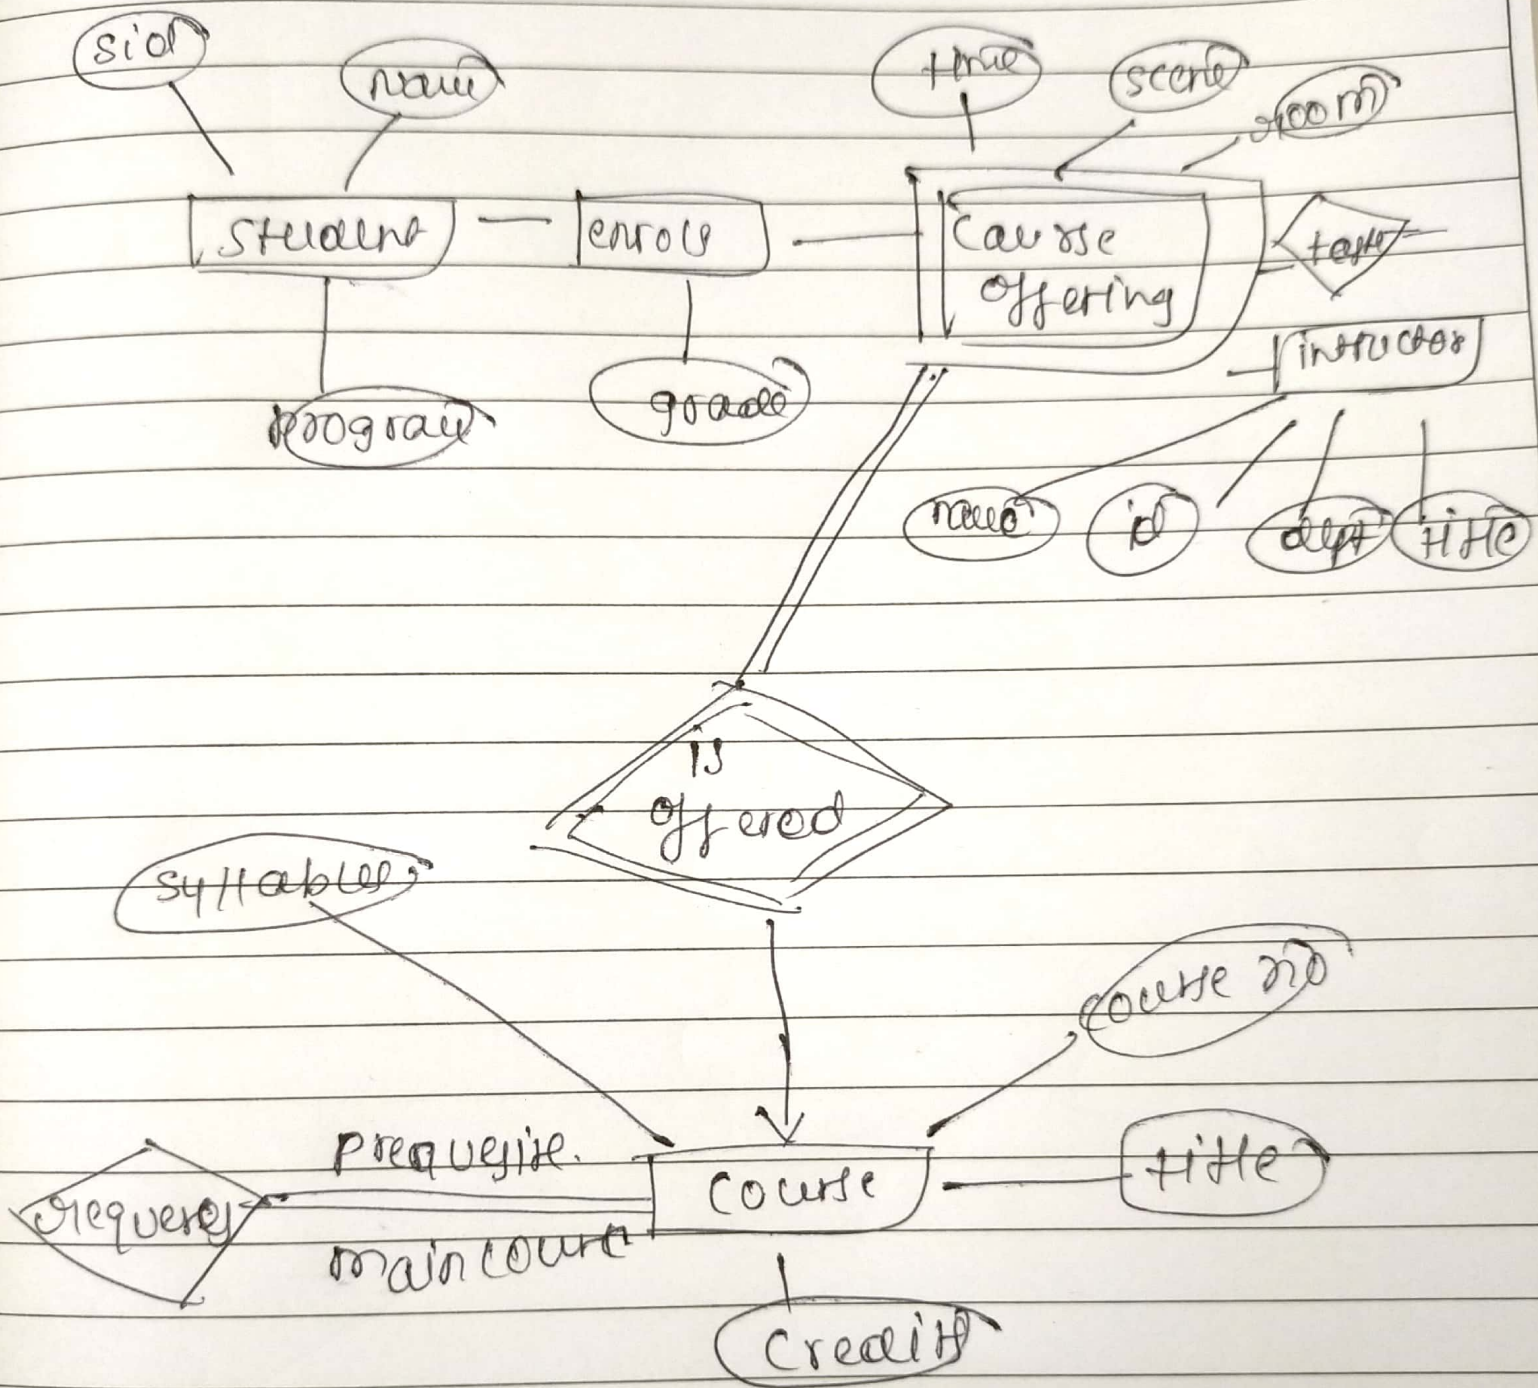 sid
name
time
scene
room
student
enrols
Course
offering
intructor
program
grade
name
id
dept
title
is
offered
syllables
course no
prequesite.
course
title
maincourse
credits